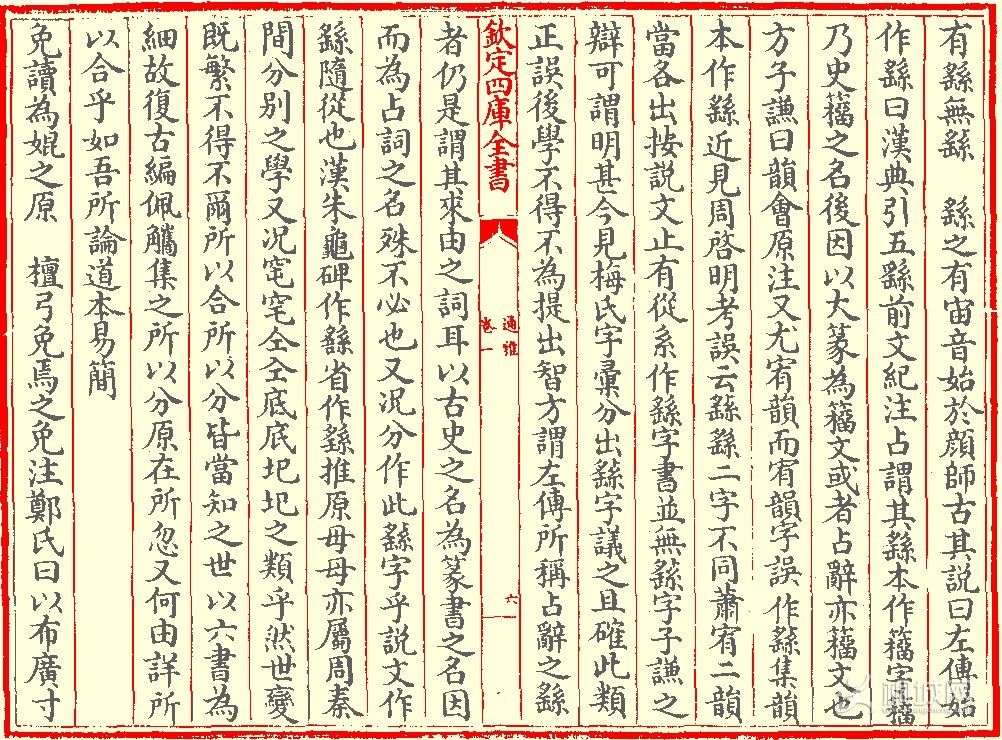 有繇無繇　繇之有宙音始於顏師古其說曰左傳始
作繇曰漢典引五繇前文紀注占謂其繇本作籀字籀
乃史籀之名後因以大篆為籀文或者占辭亦籀文也
方子謙曰韻會原注又尤宥韻而宥韻字誤作繇集韻
本作繇近見周啓明考誤云繇繇二字不同蕭宥二韻
當各出按說文止有從系作繇字書並無繇字子謙之
辯可謂明甚今見梅氏字彙分出繇字議之且確此類
正誤後學不得不為提出智方謂左傳所稱占辭之繇
欽定四庫全書
通雅
卷一
六
者仍是謂其來由之詞耳以古史之名為篆書之名因
而為占詞之名殊不必也又况分作此繇字乎說文作
繇隨從也漢朱龜碑作繇省作繇推原毋母亦屬周秦
間分別之學又况窀宅仝全底底圯圮之類乎然世變
既繁不得不爾所以合所以分皆當知之世以六書為
細故復古編佩觿集之所以分原在所忽又何由詳所
以合乎如吾所論道本易簡
免讀為娩之原　檀弓免焉之免注鄭氏曰以布廣寸